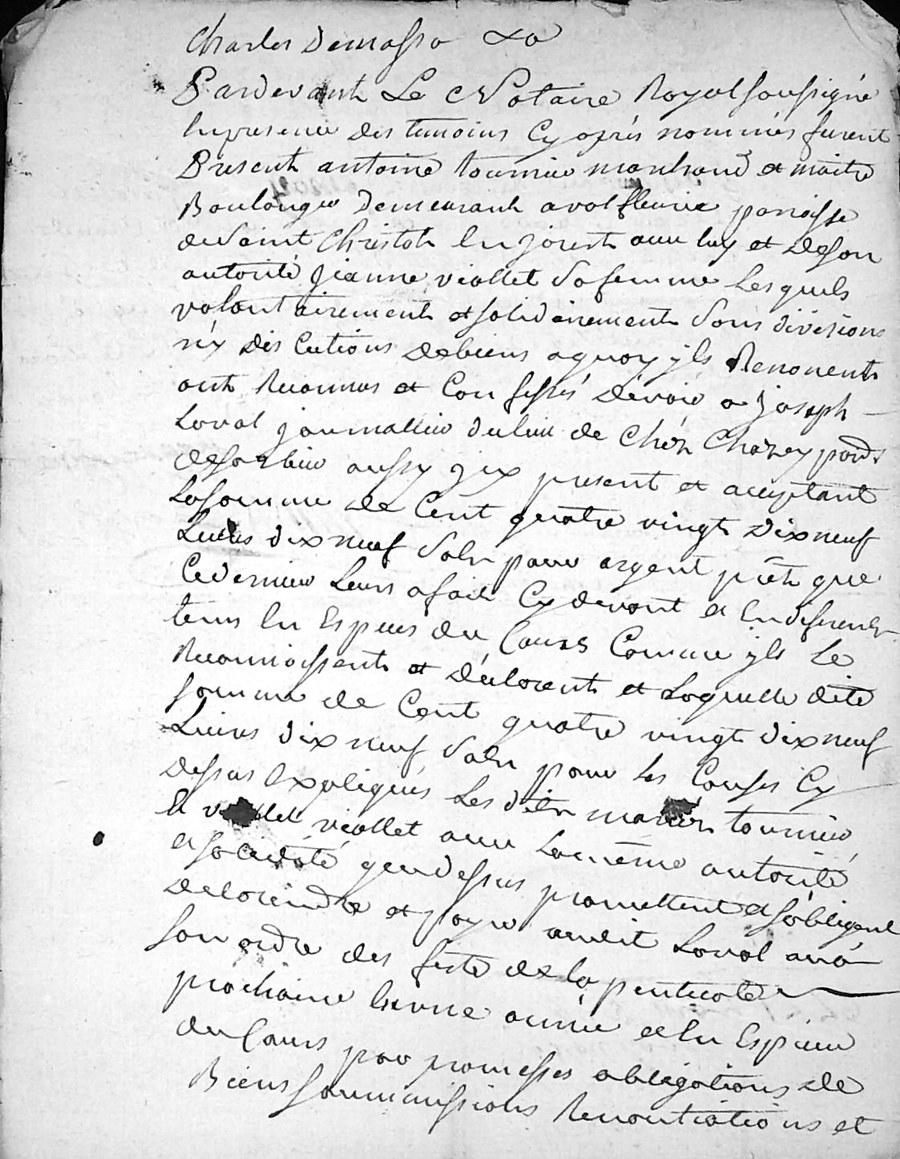 Charles Demasso
Pardevant Le Notaire Royal soussigné
En presence des temoins Cy après nommés furent
Present antoine tournieu marchand et maitre
Boulonger Demeurant a valfleurie paroisse
de saint Christoh En jarest avec luy et de son
autorité jeanne viallet sa femme Lesquels
volontairement et solidairement sans divisions
ny discutions de biens a quoy jls Renoncent
ont Reconnus et Confessés Devoir a joseph
Laval journallier du lieu de Chéz Chazey
de sorbier aussy present et aceptant
La somme de Cent quatre vingt Dix neuf
Livres dix neuf sols pour argent prêté que
Ce dernier Leurs a fait Cy devant et En diferents
tems En Especes du Cours Comme jls Le
Reconnoissent et déclarent et Laquelle dite
somme de Cent quatre vingt dix neuf
Livres dix neuf sols pour Les Causes Cy
Dessus Expliqués Les dits mariés tournieu
et viallet avec La même autorité
et solidité que dessus promettent et s'obligent
De La rendre et payer audit Laval ou a
son ordre des feste de la penticote
prochaine En une année et En Especes
du Cours par promesses obligations de
Biens soummissions Renontiations et